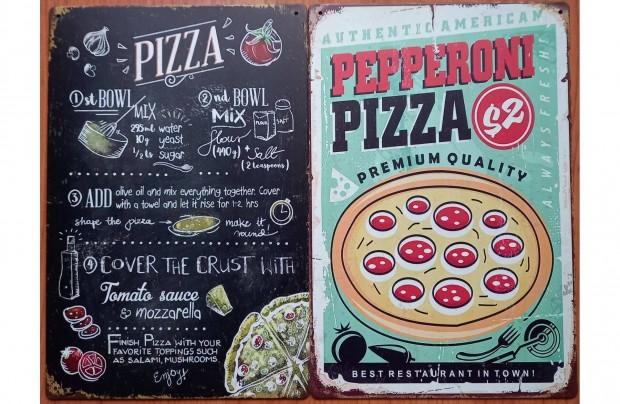 PIZZA
① st BOWL
MIX
295ml water
10g yeast
1/2 ts sugar
② nd BOWL
MIX
flour
(440g)
+ Salt
(2 teaspoons)
FLOUR
SALT
③ ADD olive oil and mix everything together. Cover
with a towel and let it rise for 1-2 hrs
shape the pizza
make it
round!
④ COVER THE CRUST WITH
Tomato sauce
& mozzarella
FINISH PIZZA WITH YOUR
FAVORITE TOPPINGS SUCH
AS SALAMI, MUSHROOMS.
Enjoy!
AUTHENTIC AMERICAN
PEPPERONI
PIZZA $2
PREMIUM QUALITY
ALWAYS FRESH!
BEST RESTAURANT IN TOWN!